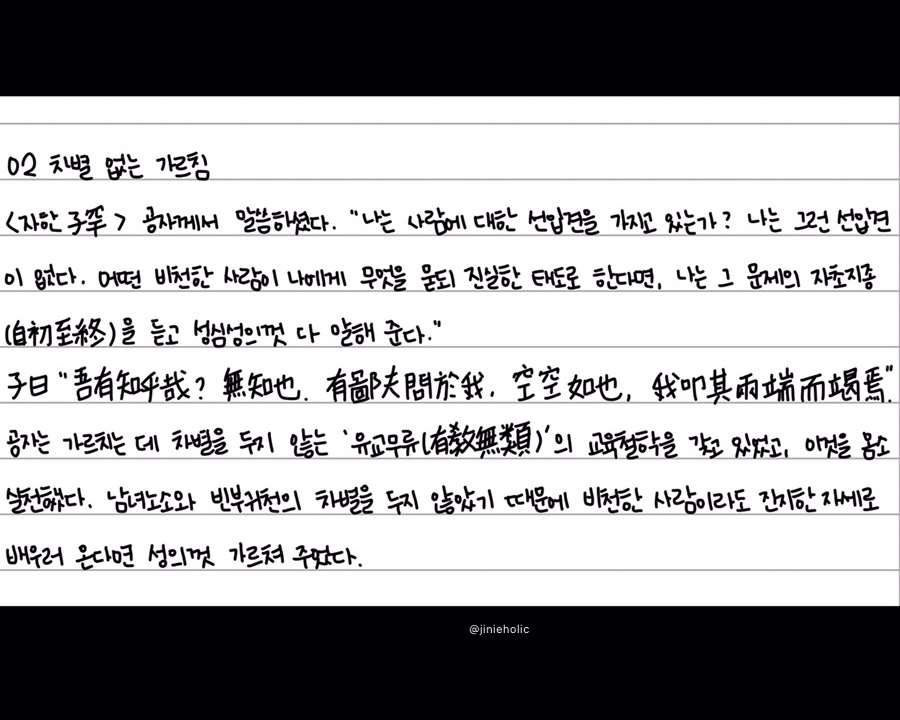 02 차별 없는 가르침
<자한 子罕> 공자께서 말씀하셨다. "나는 사람에 대한 선입견을 가지고 있는가? 나는 그런 선입견
이 없다. 어떤 비천한 사람이 나에게 무엇을 묻되 진실한 태도로 한다면, 나는 그 문제의 자초지종
(自初至終)을 듣고 성심성의껏 다 말해 준다."
子曰 "吾有知乎哉? 無知也. 有鄙夫問於我, 空空如也, 我叩其兩端而竭焉."
공자는 가르치는 데 차별을 두지 않는 '유교무류(有敎無類)'의 교육철학을 갖고 있었고, 이것을 몸소
실천했다. 남녀노소와 빈부귀천의 차별을 두지 않았기 때문에 비천한 사람이라도 진지한 자세로
배우러 온다면 성의껏 가르쳐 주었다.
@jinieholic